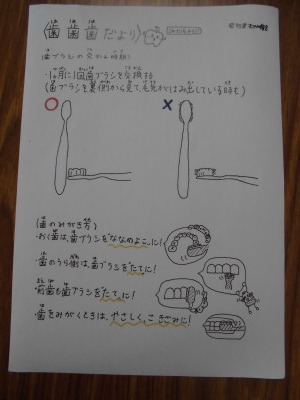 歯歯歯だより
歯ブラシの交かん時期
・1ヵ月に1回歯ブラシを交換する
(歯ブラシを裏側から見て、毛先がはみ出している時も)
○ ×
(歯のみがき方)
・おく歯は、歯ブラシをななめよこに!
・歯のうら側は、歯ブラシをたてに!
・前歯も歯ブラシをたてに!
・歯をみがくときは、やさしく、こきざみに!